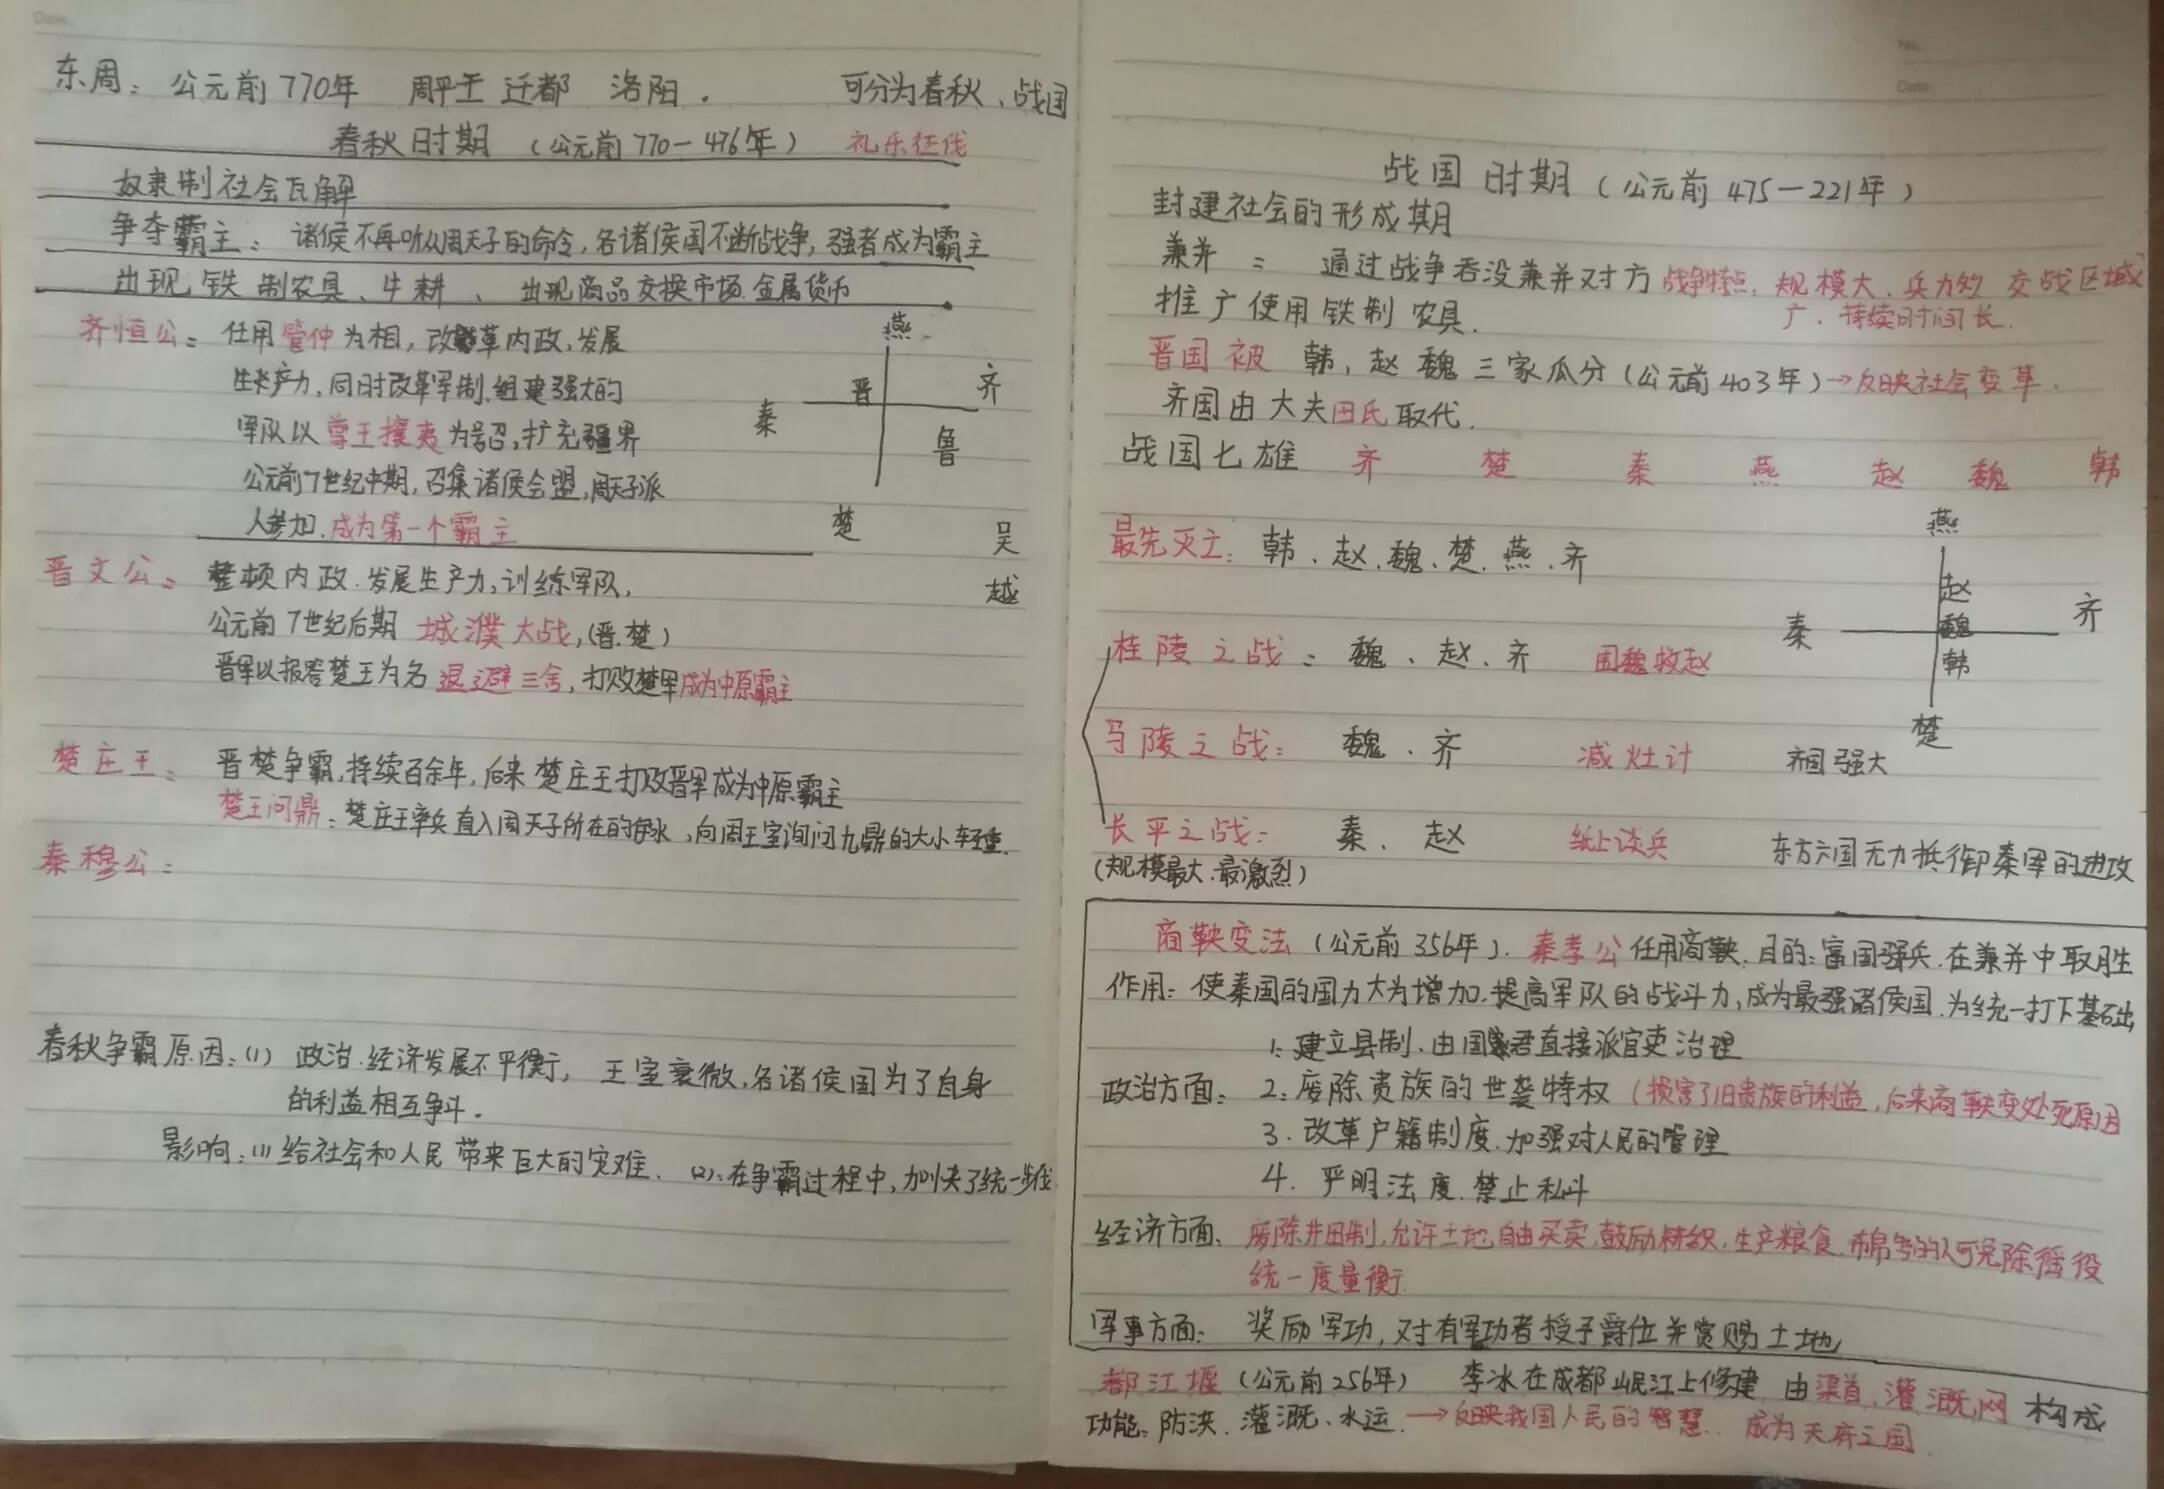 Date
东周：公元前770年 周平王 迁都 洛阳． 可分为春秋、战国
春秋时期 （公元前770－476年） 礼乐征伐
奴隶制社会瓦解
争夺霸主：诸侯不再听从周天子的命令，各诸侯国不断战争，强者成为霸主
出现 铁 制农具、牛耕、 出现商品交换市场．金属货币
齐恒公：任用管仲为相，改革内政，发展
生产力，同时改革军制．组建强大的
军队以尊王攘夷为号召，扩充疆界
公元前7世纪中期，召集诸侯会盟，周天子派
人参加．成为第一个霸主
燕
晋 齐
秦
鲁
楚 吴
越
晋文公：整顿内政．发展生产力，训练军队，
公元前7世纪后期 城濮大战，（晋．楚）
晋军以报答楚王为名 退避三舍，打败楚军成为中原霸主
楚庄王：晋楚争霸，持续百余年，后来 楚庄王打败晋军成为中原霸主
楚王问鼎：楚庄王率兵直入周天子所在的，向周王室询问九鼎的大小轻重．
秦穆公：
春秋争霸原因：(1) 政治．经济发展不平衡， 王室衰微，各诸侯国为了自身
的利益相互争斗．
影响：(1) 给社会和人民 带来巨大的灾难． (2)：在争霸过程中，加快了统一步伐
No.
Date
战国时期（公元前475－221年）
封建社会的形成期
兼并： 通过战争吞没兼并对方 战争特点：规模大、兵力多 交战区域
广、持续时间长．
推广使用铁制农具．
晋国被 韩，赵 魏 三家瓜分（公元前403年）→反映社会变革．
齐国由大夫田氏取代．
战国七雄 齐 楚 秦 燕 赵 魏 韩
最先灭亡：韩、赵、魏、楚、燕、齐
燕
赵
秦 魏 齐
韩
楚
桂陵之战：魏、赵、齐 围魏救赵
马陵之战：魏、齐 减灶计 齐国强大
长平之战：秦、赵 纸上谈兵 东方六国无力抵御秦军的进攻
（规模最大．最激烈）
商鞅变法（公元前356年）．秦孝公任用商鞅．目的：富国强兵．在兼并中取胜
作用：使秦国的国力大为增加．提高军队的战斗力，成为最强诸侯国．为统一打下基础
1：建立县制．由国君直接派官吏治理
政治方面：2：废除贵族的世袭特权（损害了旧贵族的利益，后来商鞅变处死原因
3．改革户籍制度．加强对人民的管理
4．严明法度．禁止私斗
经济方面：废除井田制，允许土地自由买卖，鼓励耕织，生产粮食．布帛多的人可免除徭役
统一度量衡．
军事方面：奖励军功，对有军功者授予爵位并赏赐土地
都江堰（公元前256年） 李冰在成都岷江上修建 由渠首、灌溉网构成
功能：防洪．灌溉、水运．→反映我国人民的智慧．成为天府之国